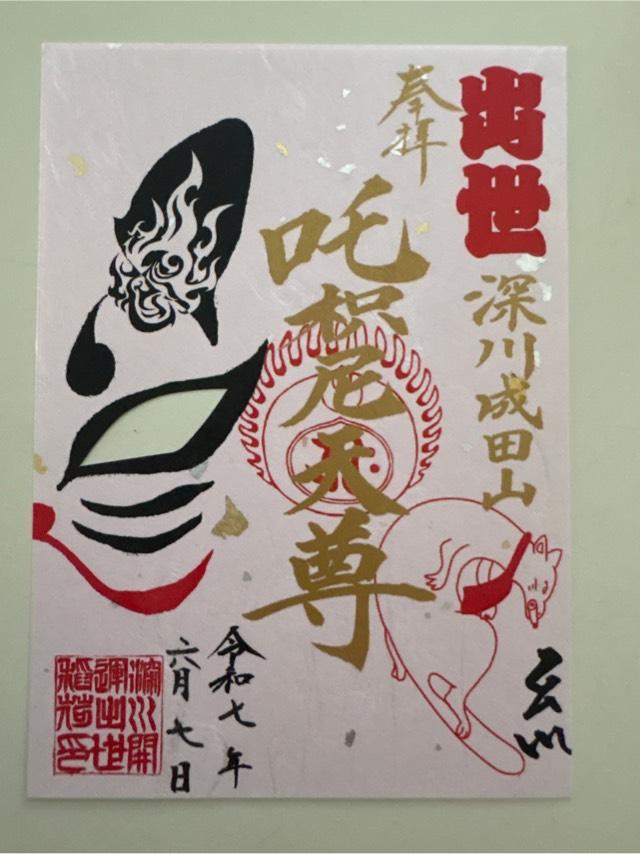 出世
深川成田山
奉拝
吒枳尼天尊
令和七年
六月七日
深川開
運出世
稲荷印